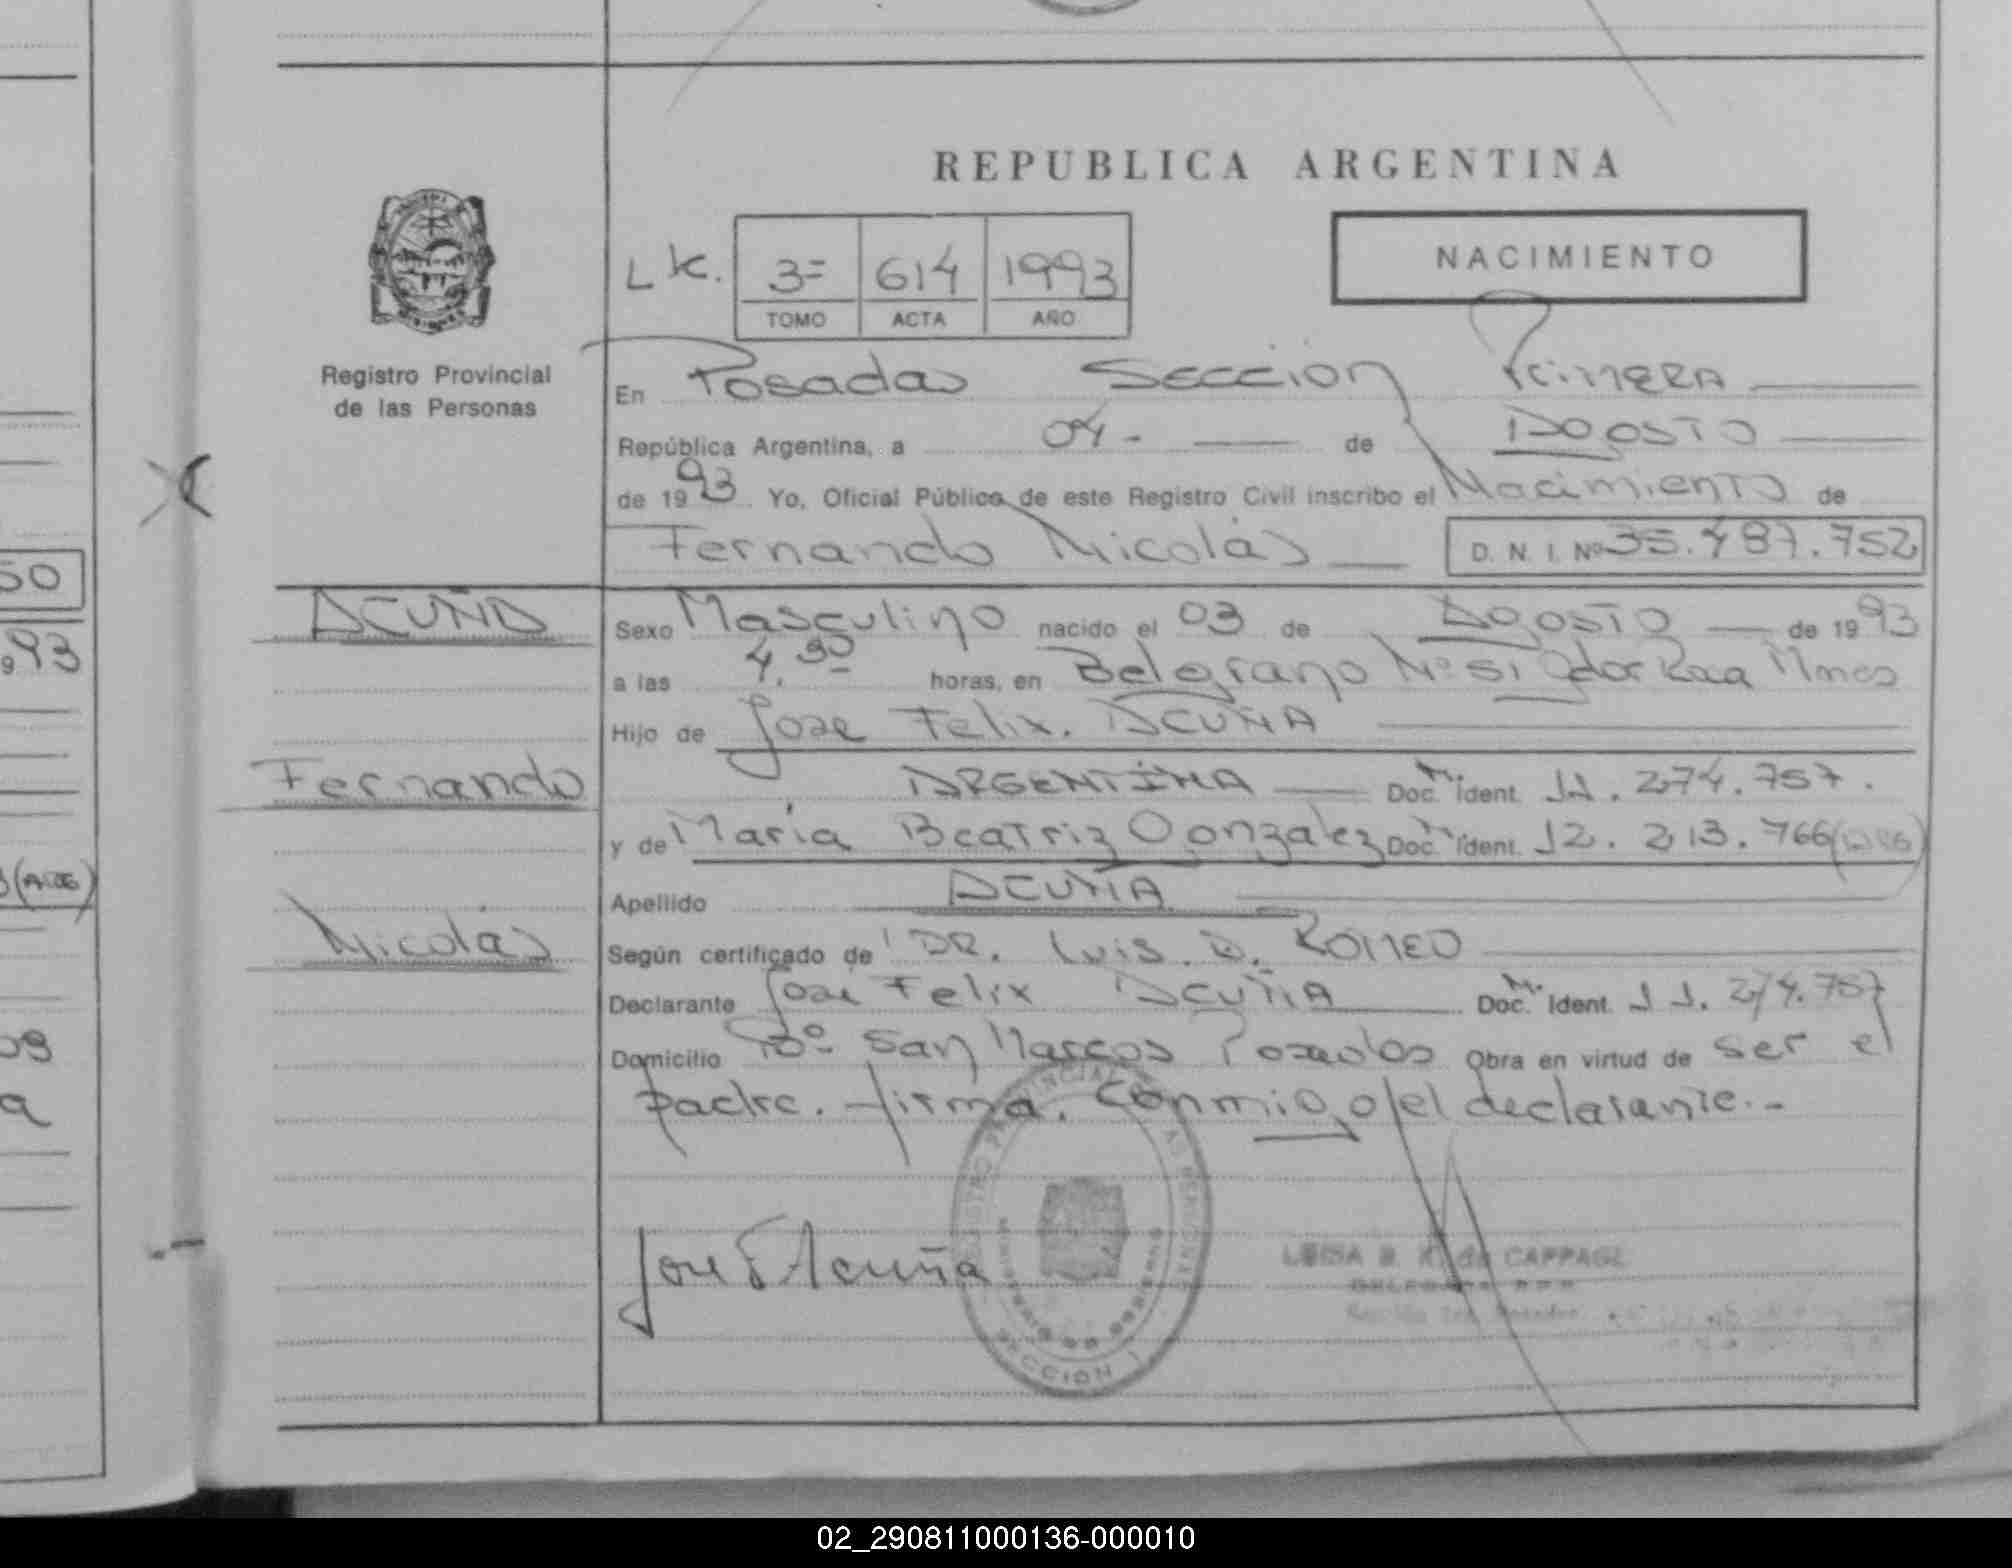 REPUBLICA ARGENTINA
NACIMIENTO
LK. 3= 614 1993
TOMO ACTA AÑO
Registro Provincial
de las Personas
En Posadas Sección Primera
República Argentina, a 04 - de Agosto
de 1993 Yo, Oficial Público de este Registro Civil inscribo el Nacimiento de
Fernando Nicolás D. N. I. Nº 35.487.752
ACUÑA
Sexo Masculino nacido el 03 de Agosto de 1993
a las 4.30 horas, en Belgrano Nº 51
Hijo de Jose Felix. ACUÑA
Fernando
ARGENTINA Doc. M. Ident. 11.274.757.
y de María Beatriz Gonzalez Doc. M. Ident. 12.213.766 (ARG)
Apellido ACUÑA
Nicolás
Según certificado de DR. Luis. A. ROMEO
Declarante Jose Felix ACUÑA Doc. M. Ident. 11.274.757
Domicilio Bº San Marcos Posadas Obra en virtud de ser el
padre. firma. conmigo el declarante.-
Jose F Acuña
REGISTRO PROVINCIAL DE LAS PERSONAS
SECCION 1
de CAPPAGL
50
1993
(ARG)
02_290811000136-000010